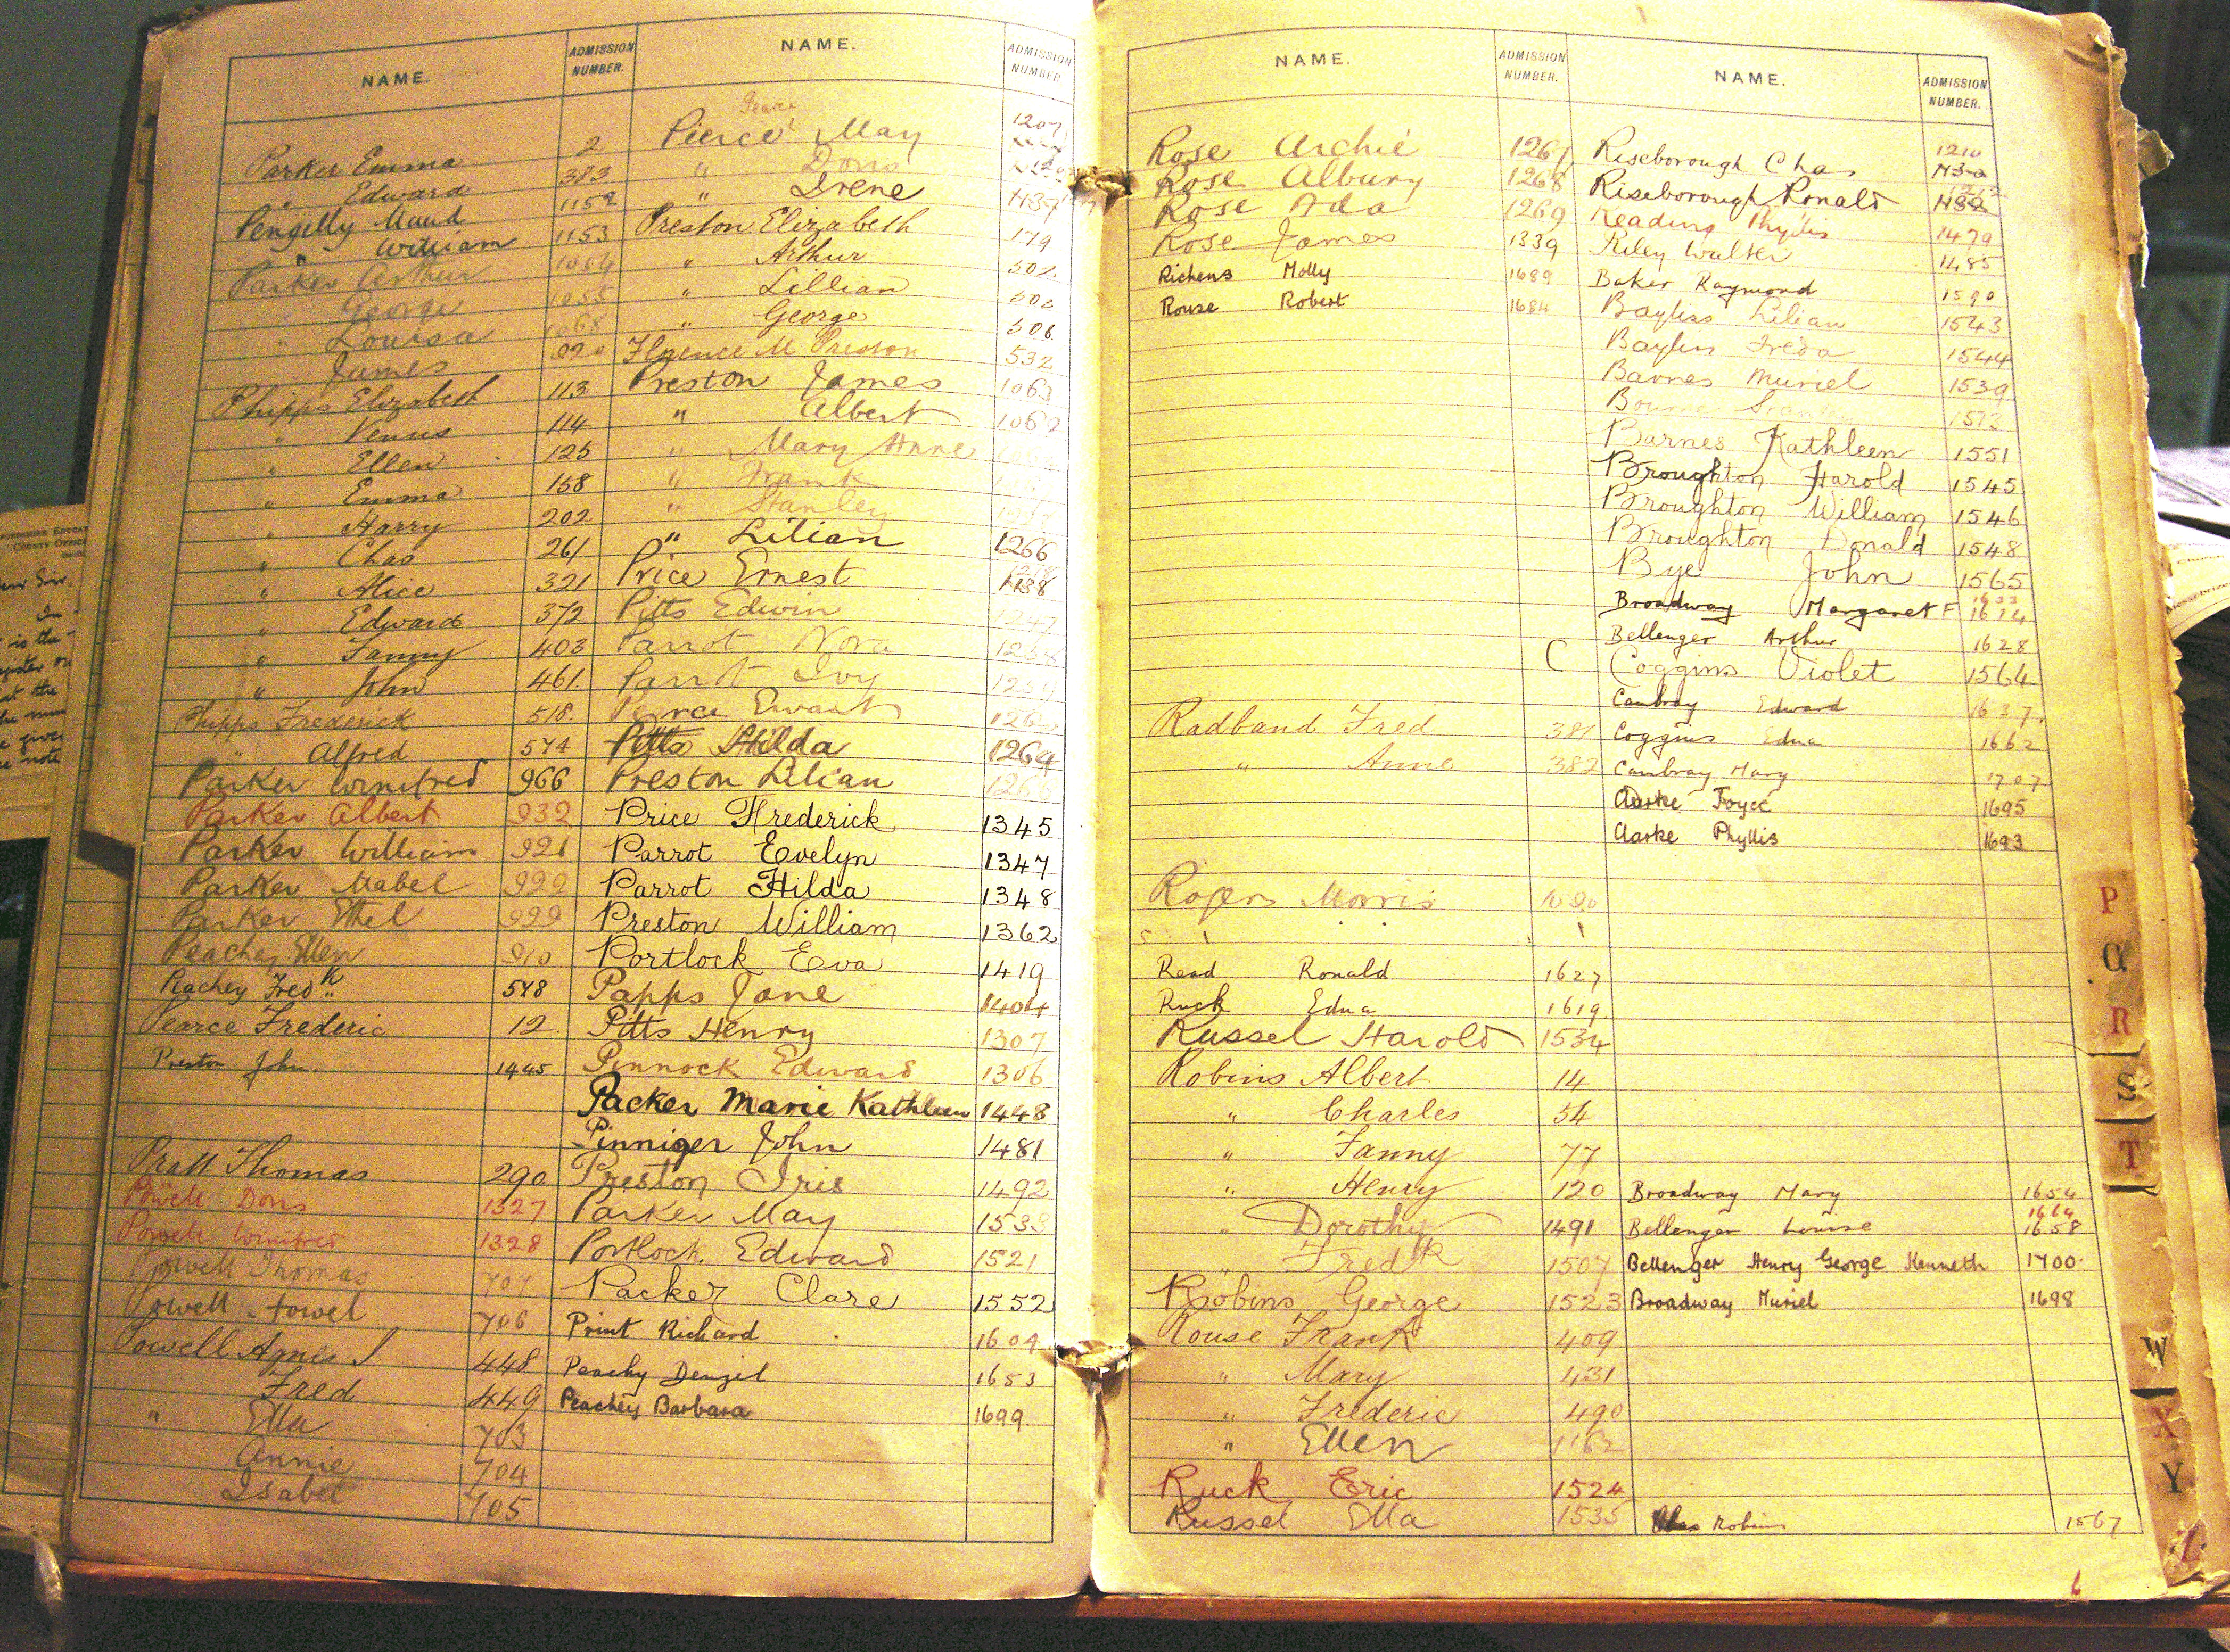 NAME. ADMISSION NUMBER.
Parker Emma 2
" Edward 383
Pengelly Maud 1152
" William 1153
Parker Arthur 1054
George 1055
" Louisa 1068
James
Phipps Elizabeth 113
" Venus 114
" Ellen 125
" Emma 158
" Harry 202
" Chas 261
" Alice 321
" Edward 372
" Fanny 403
" John 461.
Phipps Frederick 518.
" Alfred 574
Parker Winifred 966
Parker Albert 932
Parker William 921
Parker Mabel 922
Parker Ethel 999
Peachey Ellen 910
Peachey Fredk 548
Pearce Frederic 12
Preston John. 1445
Pratt Thomas 290
Powell Doris 1327
Powell Winifred 1328
Powell Thomas 707
Powell 706
Powell 448
Fred 449
" Ella 703
Annie 704
Isabel 705
NAME. ADMISSION NUMBER.
Pierce May 1207
" Doris
" Irene
Preston Elizabeth 179
" Arthur 302
" Lillian 303
" George 306.
Florence M Preston 532
Preston James 1063
" Albert 1062
" Mary Anne
" Frank
" Stanley
" Lilian 1266
Price Ernest 1138
Pitts Edwin 1247
Parrot Nora
Parrot Ivy
Pearce Ewart
Pitts Hilda 1264
Preston Lilian 1266
Price Frederick 1345
Parrot Evelyn 1347
Parrot Hilda 1348
Preston William 1362
Portlock Eva 1419
Papps Jane 1404
Pitts Henry 1307
Pinnock Edward 1306
Packer Marie Kathleen 1448
Pinniger John 1481
Preston Iris 1492
Parker May 1533
Portlock Edward 1521
Packer Clare 1552
Print Richard 1604
Peachy Denzil 1653
Peachey Barbara 1699
NAME. ADMISSION NUMBER.
Rose Archie 1267
Rose Albury 1268
Rose Ada 1269
Rose James 1339
Richens Molly 1689
Rouse Robert 1684
C
Radband Fred 381
" Anne 382
Rogers Morris
Read Ronald 1627
Ruck Edna 1619
Russel Harold 1534
Robins Albert 14
" Charles 54
" Fanny 77
" Henry 120
" Dorothy 1491
" Fredk 1507
Robins George 1523
Rouse Frank 409
" Mary 431
" Frederic 490
" Ellen 1162
Ruck Eric 1524
Russel Ella 1535
NAME. ADMISSION NUMBER.
Riseborough Chas 1210
Riseborough Ronald
Reading Phyllis 1479
Riley Walter 1485
Baker Raymond 1590
Bayliss Lilian 1543
Bayliss Freda 1544
Barnes Muriel 1539
Bourne Stanley 1573
Barnes Kathleen 1551
Broughton Harold 1545
Broughton William 1546
Broughton Donald 1548
Bye John 1565
Broadway Margaret F
Bellenger Arthur 1628
Coggins Violet 1564
Cambray Edward 1637.
Coggins Edna 1662
Cambray Mary 1707
Clarke Joyce 1695
Clarke Phyllis 1693
Broadway Mary 1654
1664
Bellenger Louise 1658
Bellenger Henry George Kenneth 1700.
Broadway Muriel 1698
Robins 1567
P
Q
R
S
T
W
X
Y